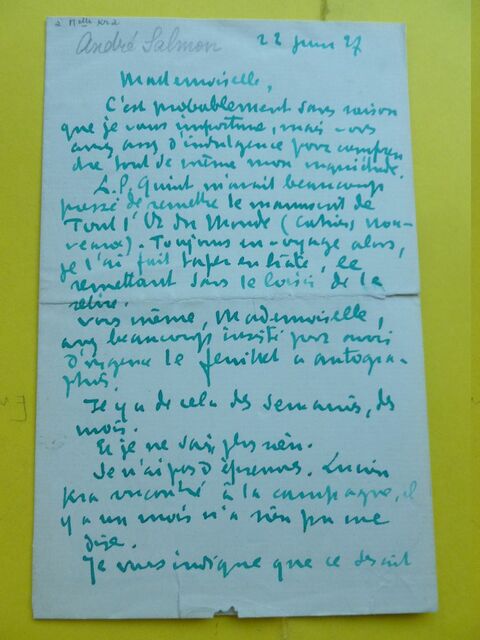 à Melle Kra
André Salmon
22 juin 27
Mademoiselle,
C'est probablement sans raison
que je vous importune, mais vous
avez assez d'indulgence pour compren
dre tout de même mon inquiétude.
L.P. Quint m'avait beaucoup
pressé de remettre le manuscrit de
Tout l'Or du Monde (Cahiers nou-
veaux). Toujours en voyage alors,
je l'ai fait taper en hâte, le
remettant sans le loisir de le
relire.
Vous même, Mademoiselle,
avez beaucoup insisté pour avoir
d'urgence le feuillet a autogra-
phié.
Il y a de cela des semaines, des
mois.
Et je ne sais plus rien.
Je n'ai pas d'épreuves. Lucien
Kra rencontré à la campagne, il
y a un mois n'a rien pu me
dire.
Je vous indique que ce serait